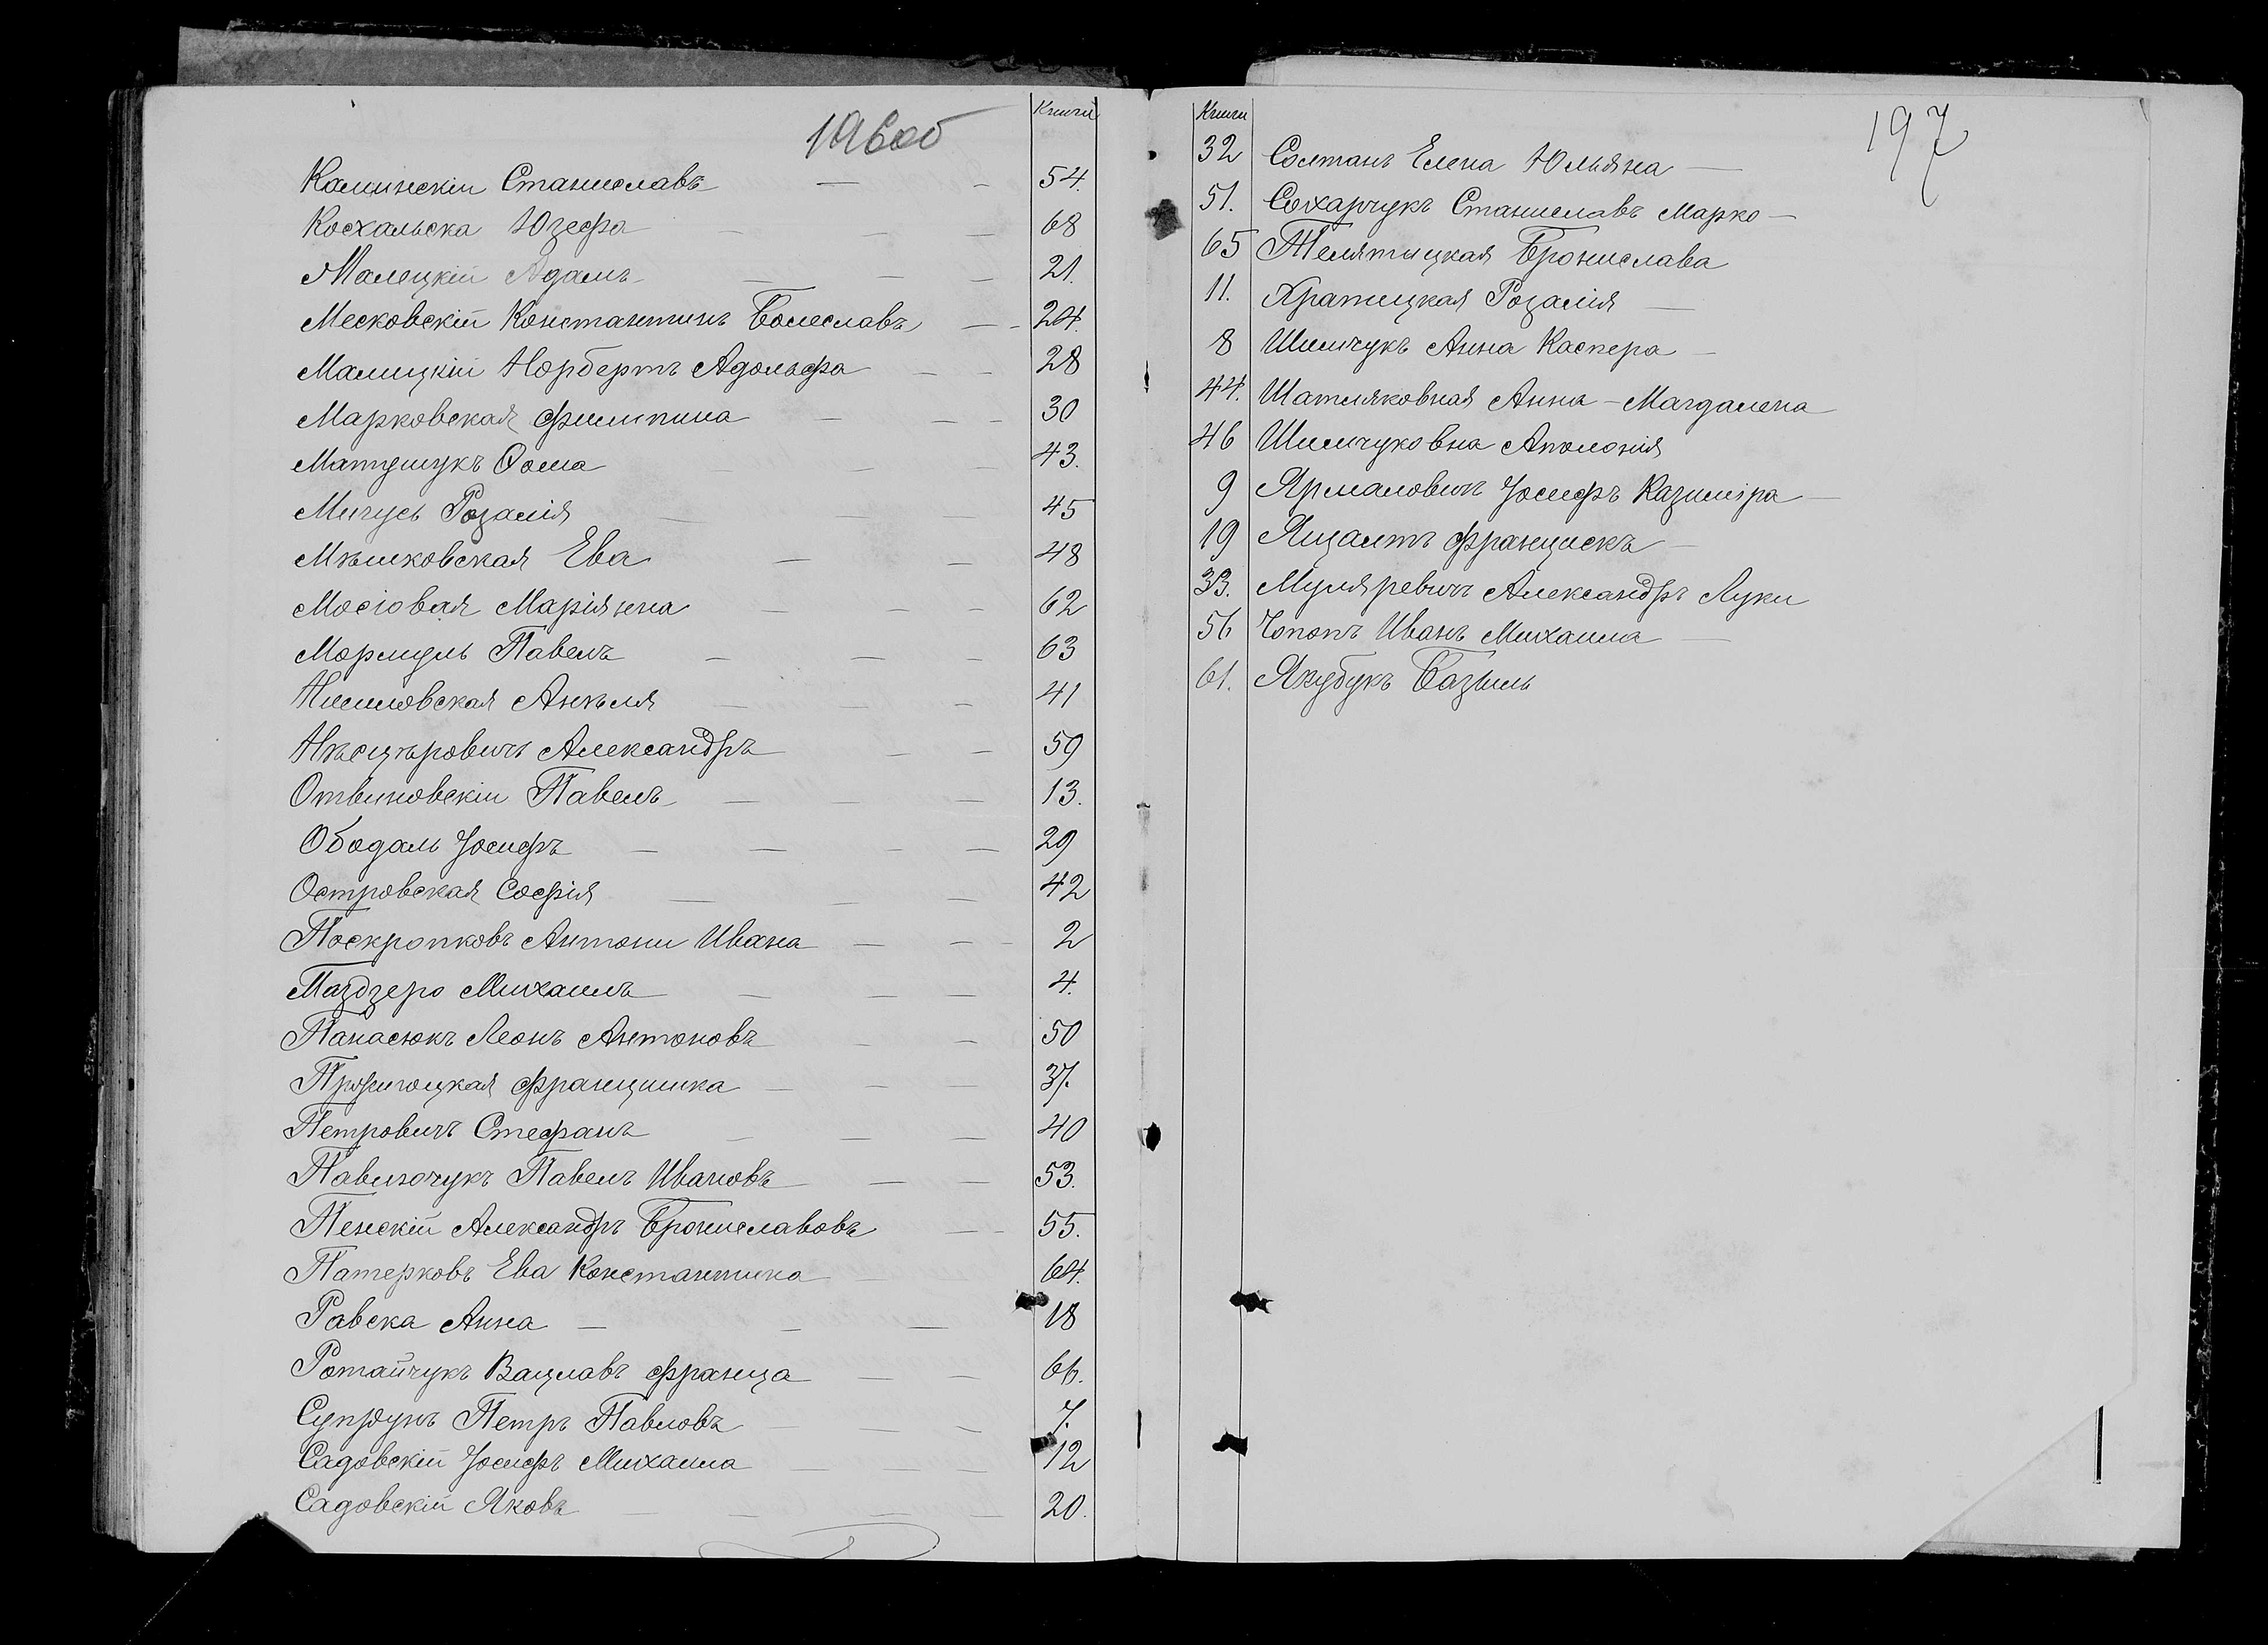 196об
Книги
Каминскій Станиславъ 54.
Косхальска Юзефа 68
Малецкій Адамъ 21.
Месковскій Константинъ Болеславъ 24.
Малицкій Норбертъ Адольфа 28
Марковская Филипина 30
Матушукъ Ѳома 43.
Мичусь Розалія 45
Мѣшковская Ева 48
Мосіовая Маріянна 62
Мормуль Павелъ 63
Анѣля 41
Нѣсцѣровичъ Александръ 59
Отвиновскій Павелъ 13.
Ободаль Іосифъ 29
Островская Софія 42
Поскропковъ Антони Ивана 2
Паздзеро Михаилъ 4.
Панасюкъ Леонъ Антоновъ 50
Францишка 37.
Петровичъ Стефанъ 40
Павлючукъ Павелъ Ивановъ 53.
Пенскій Александръ Брониславовъ 55.
Патерковъ Ева Константина 64.
Равска Анна 18
Ротайчукъ Вацлавъ Франца 66.
Супрунъ Петръ Павловъ 7.
Садовскій Іосифъ Михаила 12
Садовскій Яковъ 20.
197
Книги
32 Солтанъ Елена Юльяна
51. Сохарчукъ Станиславъ Марко
65 Телятицкая Бронислава
11. Хратицкая Розалія
8 Шимчукъ Анна Каспера
44. Шатляковная Анна-Магдалена
46 Шимчуковна Аполонія
9 Ярмаловичъ Іосифъ Казиміра
19 Францискъ
33. Муляревичъ Александръ Луки
56 Чопопъ Иванъ Михаила
61. Якубукъ Базыль